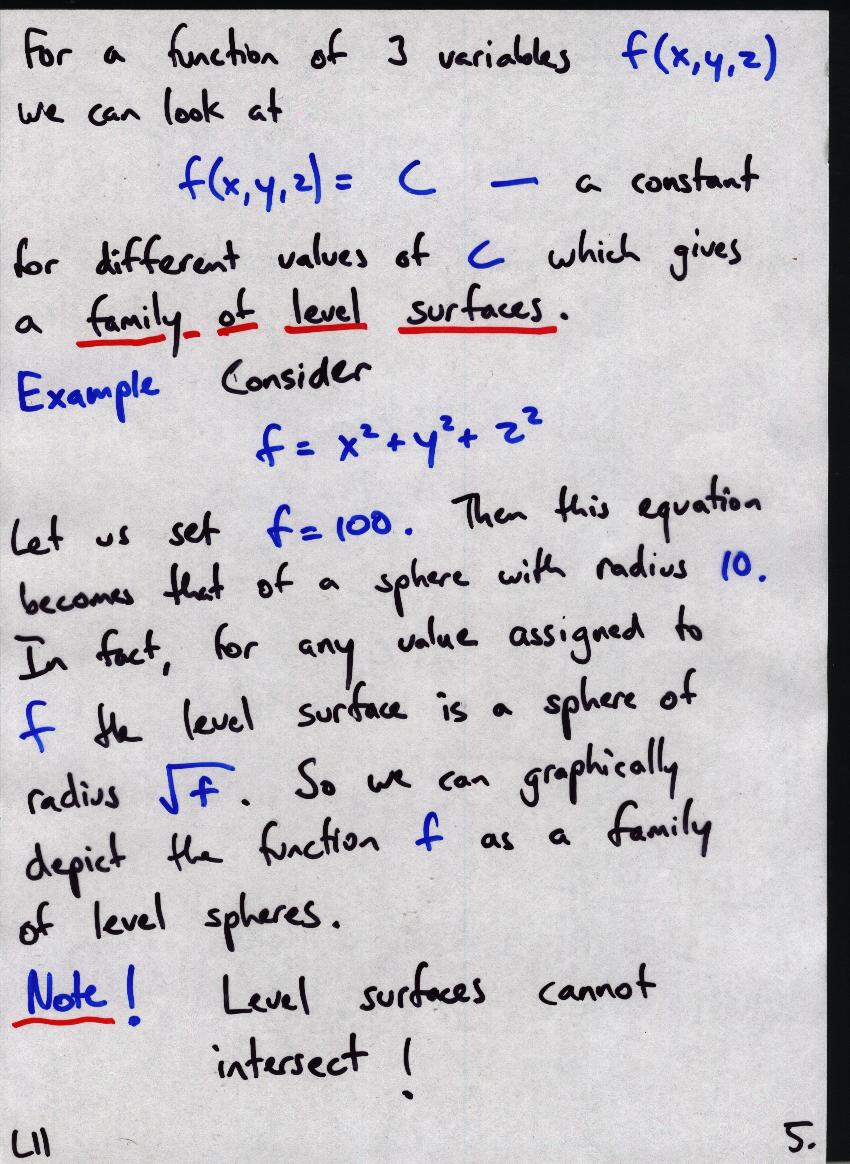 For a function of 3 variables f(x,y,z)
we can look at
f(x,y,z) = C — a constant
for different values of C which gives
a family of level surfaces.
Example Consider
f = x² + y² + z²
Let us set f = 100. Then this equation
becomes that of a sphere with radius 10.
In fact, for any value assigned to
f the level surface is a sphere of
radius √f. So we can graphically
depict the function f as a family
of level spheres.
Note! Level surfaces cannot
intersect!
L11 5.